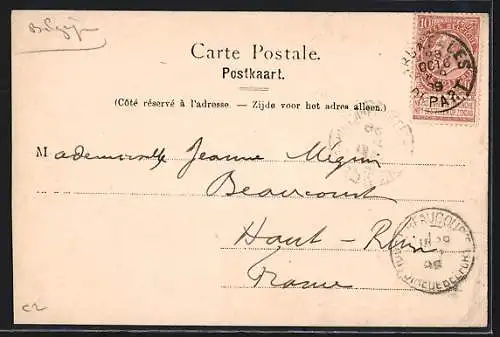 Belgique
10
Carte Postale.
Postkaart.
(Côté réservé à l'adresse. — Zijde voor het adres alleen.)
Mademoiselle Jeanne Méquin
Beaucourt
Haut-Rhin
France
BRUXELLES
DÉPART
BEAUCOURT